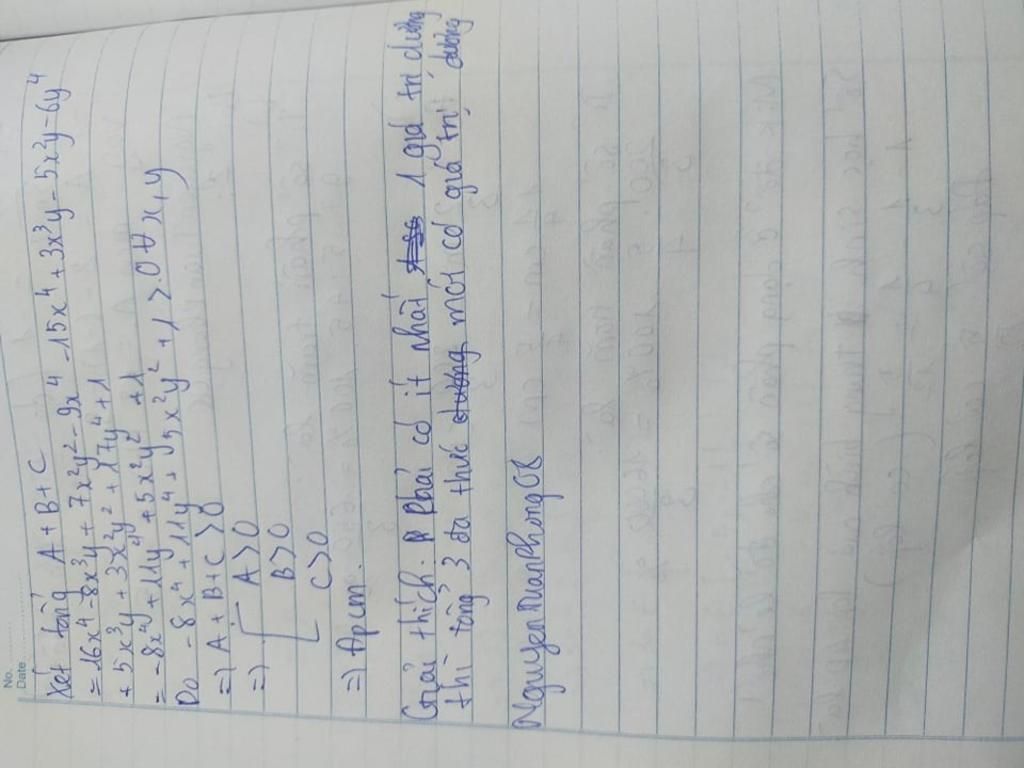 No.
Date
Xét tổng A + B + C
= 16x⁴ - 8x³y + 7x²y² - 9x⁴ - 15x⁴ + 3x³y - 5x²y - 6y⁴
+ 5x³y + 3x²y² + 17y⁴ + 1
= -8x⁴ + 11y⁴ + 5x²y² + 1
Do -8x⁴ + 11y⁴ + 5x²y² + 1 > 0 ∀ x, y
=> A + B + C > 0
=> [ A > 0
B > 0
C > 0
=> Đpcm.
Giải thích: Phải có ít nhất 1 giá trị dương
thì tổng 3 đa thức mới có giá trị dương
NguyenTuanPhong08